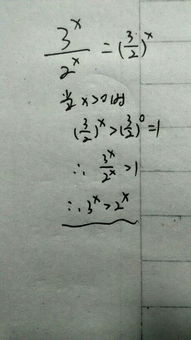 3^x/2^x = (3/2)^x
当x>0时
(3/2)^x > (3/2)^0 = 1
∴ 3^x/2^x > 1
∴ 3^x > 2^x